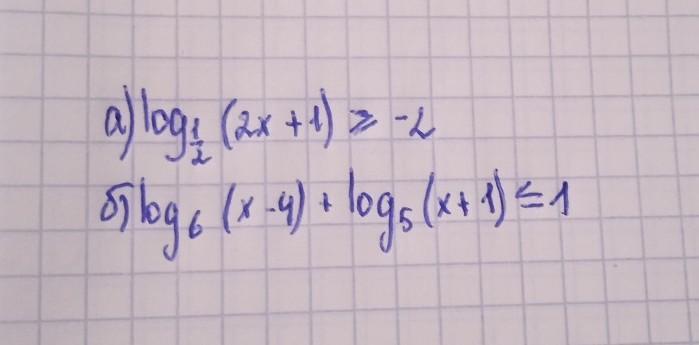 а) log_{1/2} (2x + 1) ≥ -2
б) log_6 (x - 4) + log_5 (x + 1) ≤ 1